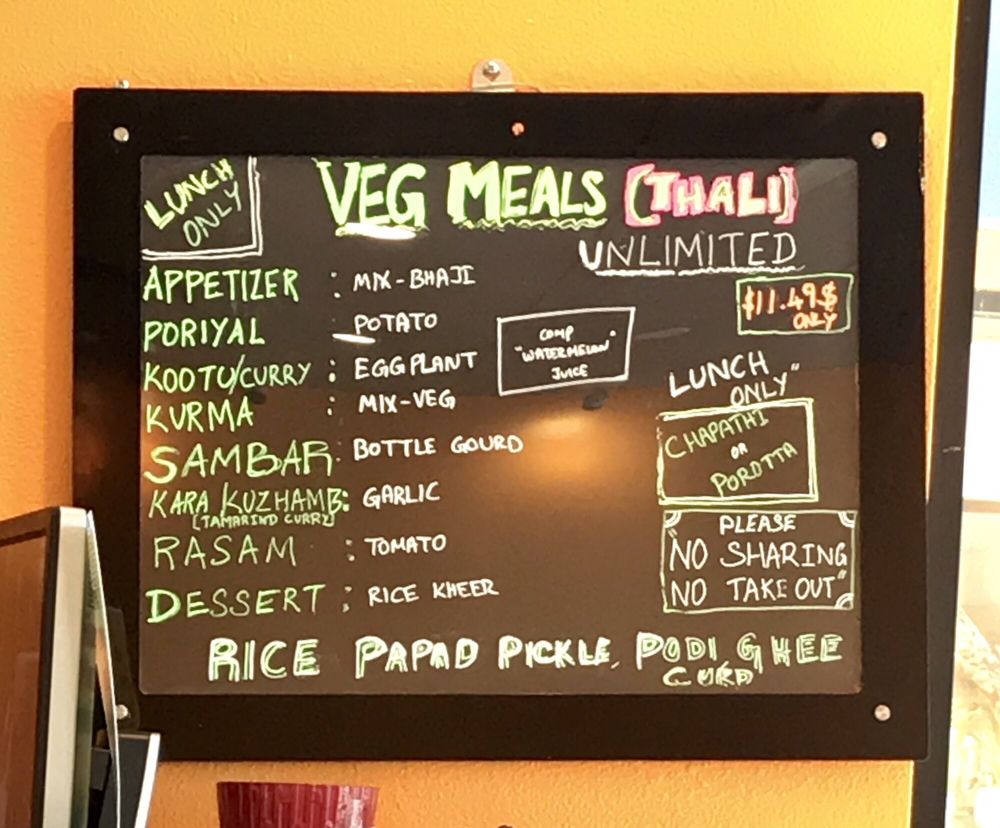 LUNCH
ONLY
VEG MEALS (THALI)
UNLIMITED
$11.49$
ONLY
APPETIZER : MIX-BHAJI
PORIYAL POTATO
KOOTU/CURRY : EGGPLANT
KURMA : MIX-VEG
SAMBAR : BOTTLE GOURD
KARA KUZHAMB: GARLIC
(TAMARIND CURRY)
RASAM : TOMATO
DESSERT : RICE KHEER
COMP
"WATERMELON"
JUICE
LUNCH
ONLY"
CHAPATHI
OR
POROTTA
PLEASE
"NO SHARING
NO TAKE OUT"
RICE PAPAD PICKLE, PODI GHEE
CURD